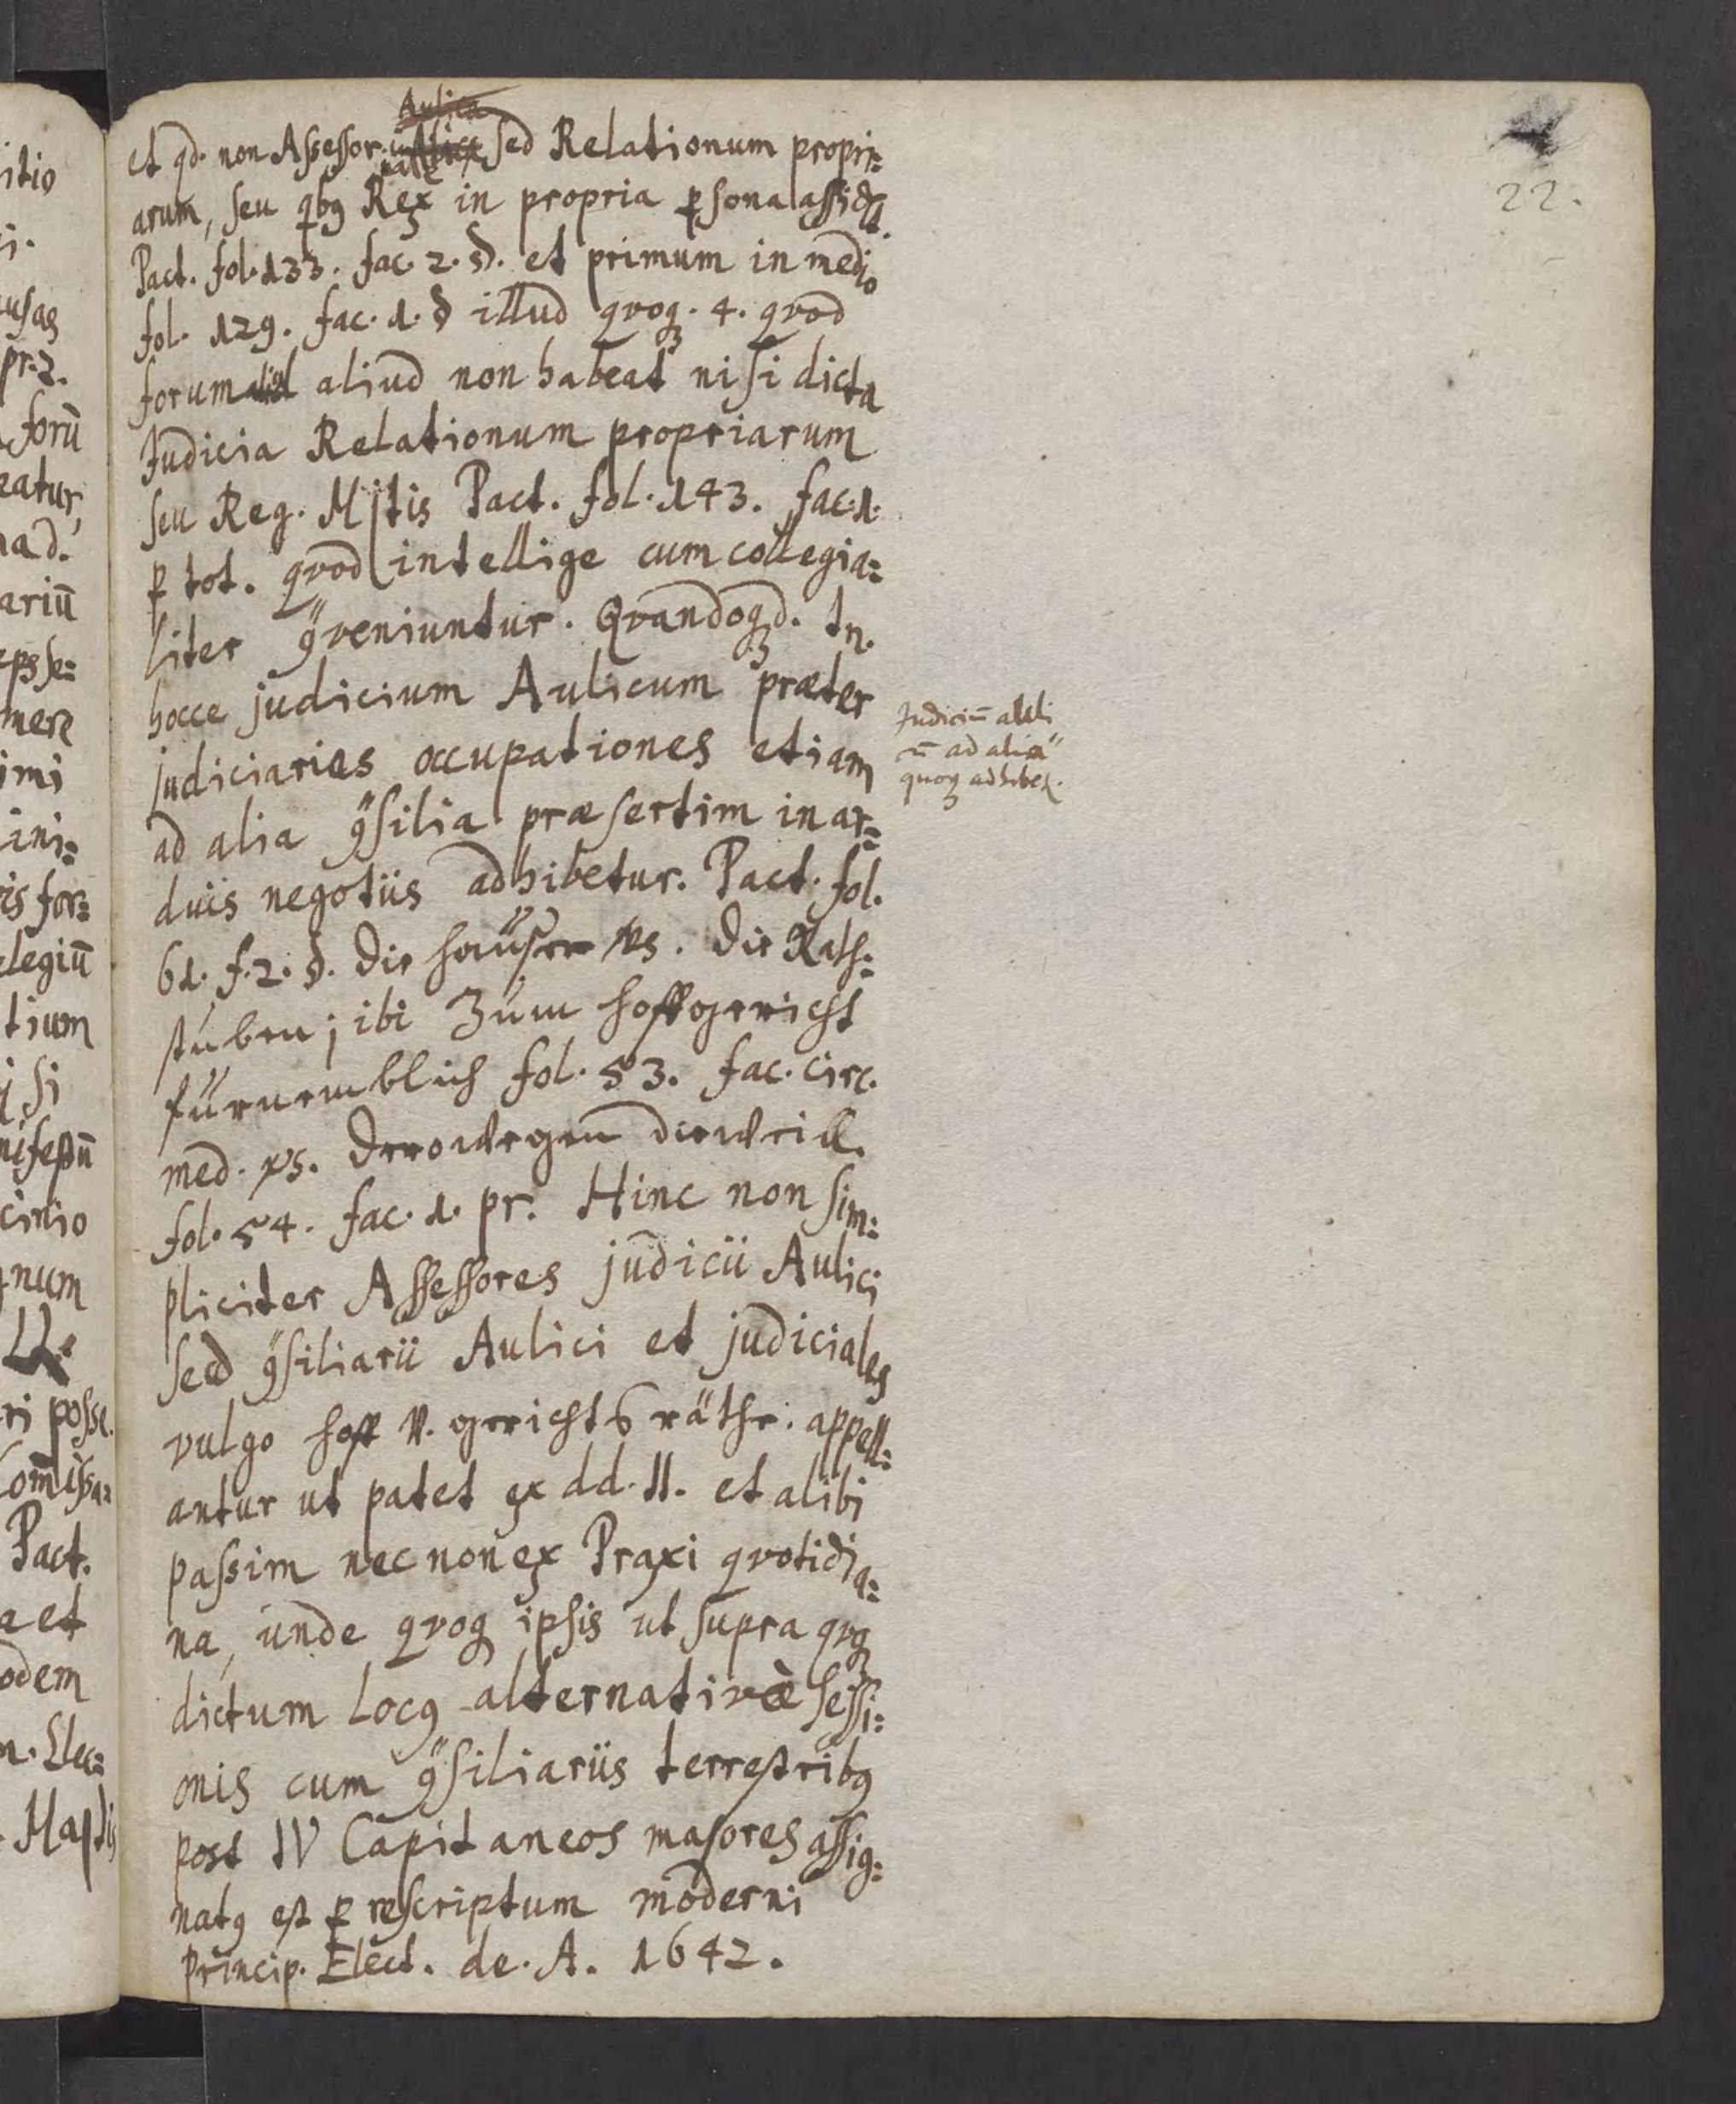 22.
et qd. non Assessor. sed Relationum propri=
arum, seu qbꝯ Rex in propria ꝑsona assidet.
Pact. fol. 133. fac. 2. §. et primum in medio
fol. 129. fac. 1. § illud qvoqꝫ. 4. qvod
forum aliud non habeat nisi dicta
Judicia Relationum propriarum
seu Reg. Mstis Pact. fol. 143. fac. 1.
ꝑ tot. qvod intellige cum collegia=
liter ꝯveniuntur. Qvandoqꝫd. tn.
hocce judicium Aulicum præter
judiciarias occupationes etiam
ad alia ꝯsilia præsertim in ar=
duis negotiis adhibetur. Pact. fol.
61. f. 2. §. die häuser vs. die Rath=
stuben; ibi Zum hoffgericht
fürnemblich fol. 53. fac. circ.
med. vs. Derowegen dieweill.
fol. 54. fac. 1. pr. Hinc non sim=
pliciter Assessores judicii Aulici
sed ꝯsiliarii Aulici et judiciales
vulgo hoff v. gerichts räthe. appell=
antur ut patet ex dd. ll. et alibi
passim nec non ex Praxi qvotidia=
na, unde qvoqꝫ ipsis ut supra qvoqꝫ
dictum locꝯ alternativè sessi=
onis cum ꝯsiliariis terrestribꝯ
post IV Capitaneos majores assig=
natꝯ est ꝑ rescriptum moderni
Princip. Elect. de. A. 1642.
Judiciū auli
cū ad alia
quoqꝫ adhibet.